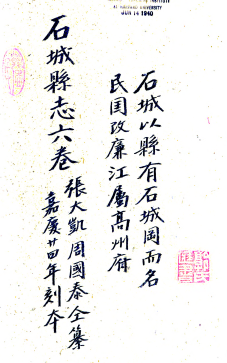 AT HARVARD UNIVERSITY
JUN 14 1940
石城以縣有石城岡而名
民国改廉江屬高州府
石城縣志六卷
張大凱周國泰仝纂
嘉慶廿四年刻本